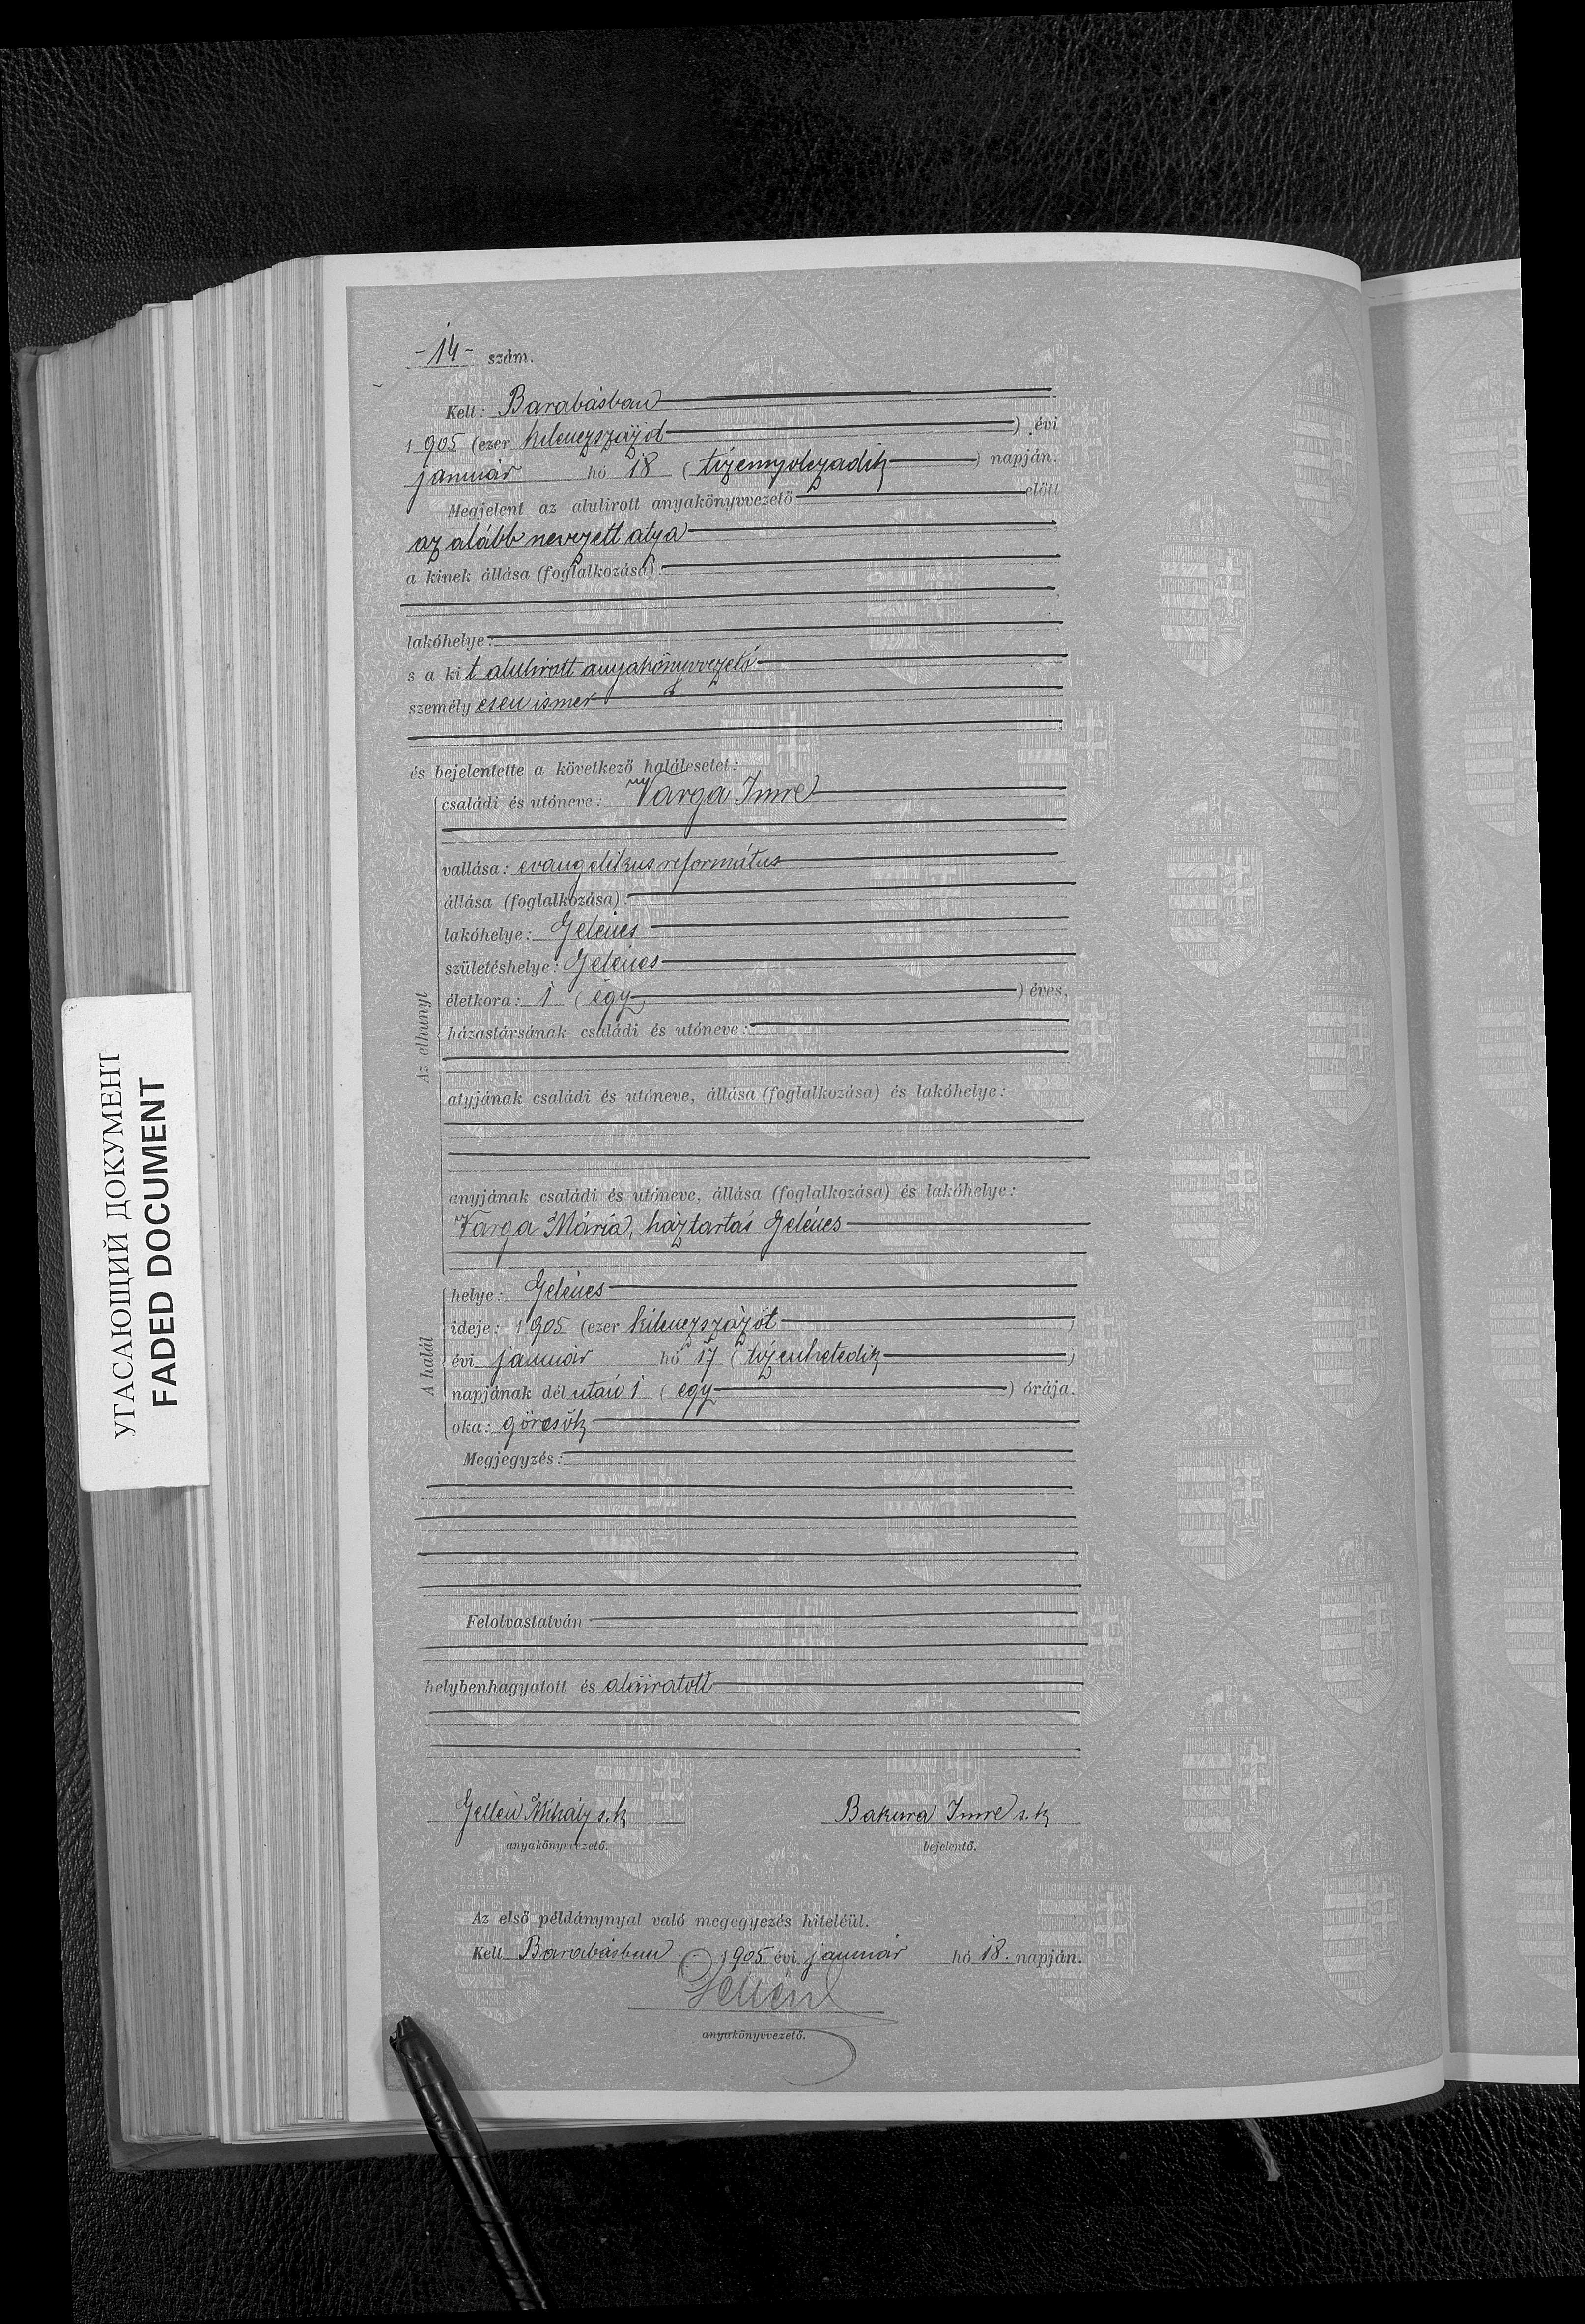 -14- szám.
Kelt: Barabásban
1905 (ezer kilenczszázöt) évi
január hó 18 (tizennyolczadik) napján.
Megjelent az alulirott anyakönyvvezető előtt
az alább nevezett atya
a kinek állása (foglalkozása):
lakóhelye:
s a kit alulirott anyakönyvvezető
személyesen ismer
és bejelentette a következő halálesetet:
Az elhunyt
családi és utóneve: Varga Imre
vallása: evangelikus református
állása (foglalkozása):
lakóhelye: Gelénes
születéshelye: Gelénes
életkora: 1 (egy) éves,
házastársának családi és utóneve:
atyjának családi és utóneve, állása (foglalkozása) és lakóhelye:
anyjának családi és utóneve, állása (foglalkozása) és lakóhelye:
Varga Mária, háztartás Gelénes
A halál
helye: Gelénes
ideje: 1905 (ezer kilenczszázöt)
évi január hó 17 (tizenhetedik)
napjának délutáni 1 (egy) órája.
oka: görcsök
Megjegyzés:
Felolvastatván
helybenhagyatott és aláiratott
Gellén Mihály s.k. Bakura Imre s.k.
anyakönyvvezető. bejelentő.
Az első példánynyal való megegyezés hiteléül.
Kelt Barabásban 1905 évi január hó 18. napján.
Gellén
anyakönyvvezető.
УГАСАЮЩИЙ ДОКУМЕНТ
FADED DOCUMENT